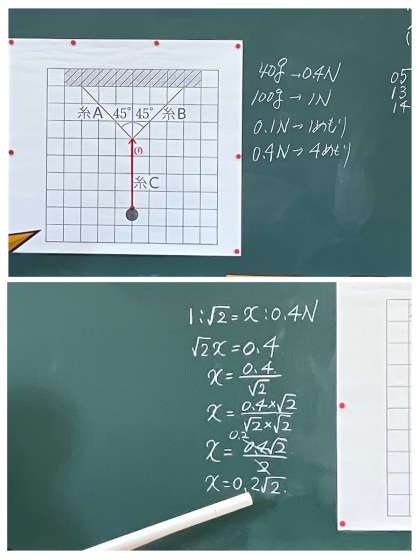 糸A 45° 45° 糸B
(1)
糸C
40g→0.4N
100g→1N
0.1N→1めもり
0.4N→4めもり
05
13
14
1:√2=x:0.4N
√2x=0.4
x=0.4/√2
x=0.4×√2/√2×√2
0.2
x=0.4√2/2
x=0.2√2